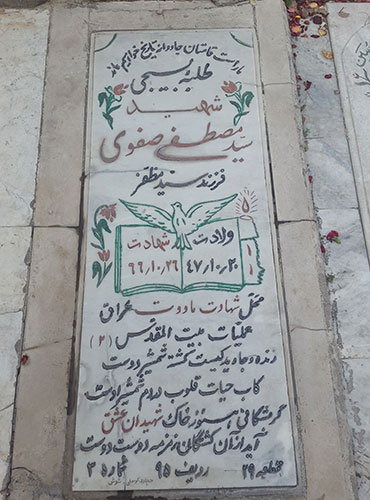 با راست قامتان جاودانه تاریخ خواهیم ماند
طلبه بسیجی
شهید
سید مصطفی صفوی
فرزند سید مظفر
ولادت شهادت
۴۷/۱۰/۲۰ ۹۶/۱۰/۲۶
محل شهادت ماووت عراق
عملیات بیت المقدس (۲)
زنده و جاوید کیست کشته شمشیر دوست
کاب حیات قلوب در دم شمشیر اوست
گر شکافی هنوز خاک شهیدان عشق
آید از آن کشتگان زمزمه دوست دوست
قطعه ۲۹ ردیف ۹۵ شماره ۳